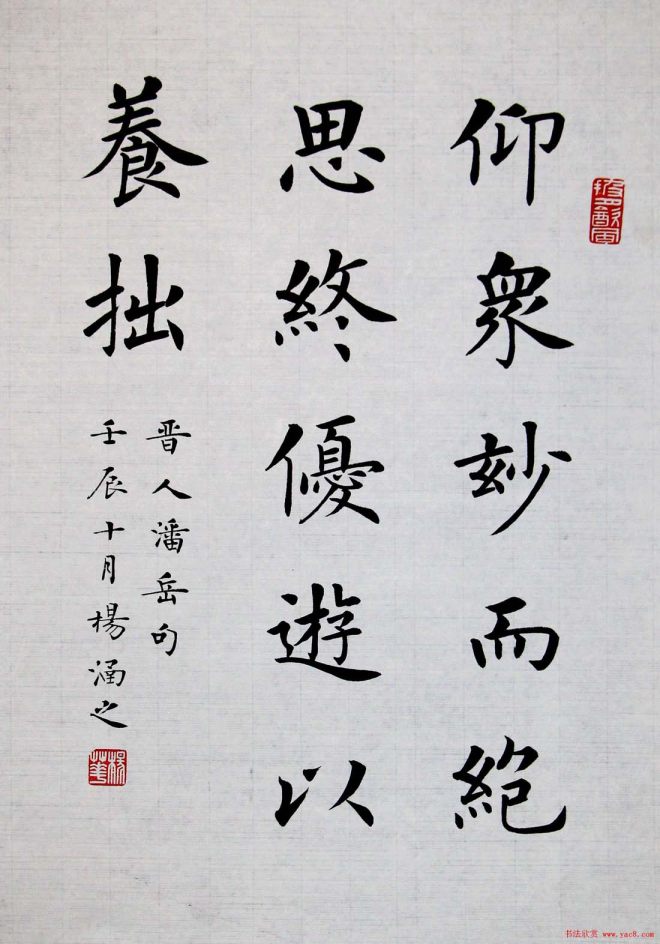 仰眾玅而絕
思終優遊以
養拙
晋人潘岳句
壬辰十月楊涵之
书法欣赏 www.yac8.com